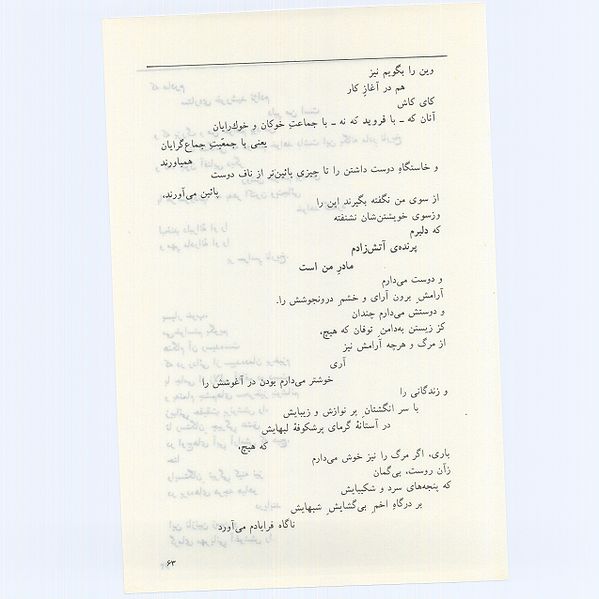 وین را بگویم نیز
هم در آغاز کار
کای کاش
آنان که ـ با فروید که نه ـ با جماعتِ خوکان و خوك‌رایان
یعنی با جمعّیتِ جماع‌گرایان
همیاورند
و خاستگاهِ دوست داشتن را تا چیزی پائین‌تر از ناف دوست
پائین می‌آورند،
از سوی من نگفته بگیرند این را
وزسوی خویشتن‌شان نشنفته
که دلبرم
پرنده‌ی آتش‌زادم
مادرِ من است
و دوست می‌دارم
آرامشِ برون آرای و خشمِ درونجوشش را.
و دوستش می‌دارم چندان
کز زیستن به‌دامنِ توفان که هیچ،
از مرگ و هرچه آرامش نیز
آری
خوشتر می‌دارم بودن در آغوشش را
و زندگانی را
با سر انگشتانِ پر نوازش و زیبایش
در آستانهٔ گرمای پرشکوفهٔ لبهایش
که هیچ،
باری، اگر مرگ را نیز خوش می‌دارم
زآن روست، بی‌گمان
که پنجه‌های سرد و شکیبایش
بر درگاهِ اخمِ بی‌گشایشِ شبهایش
ناگاه فرایادم می‌آورد
۶۳